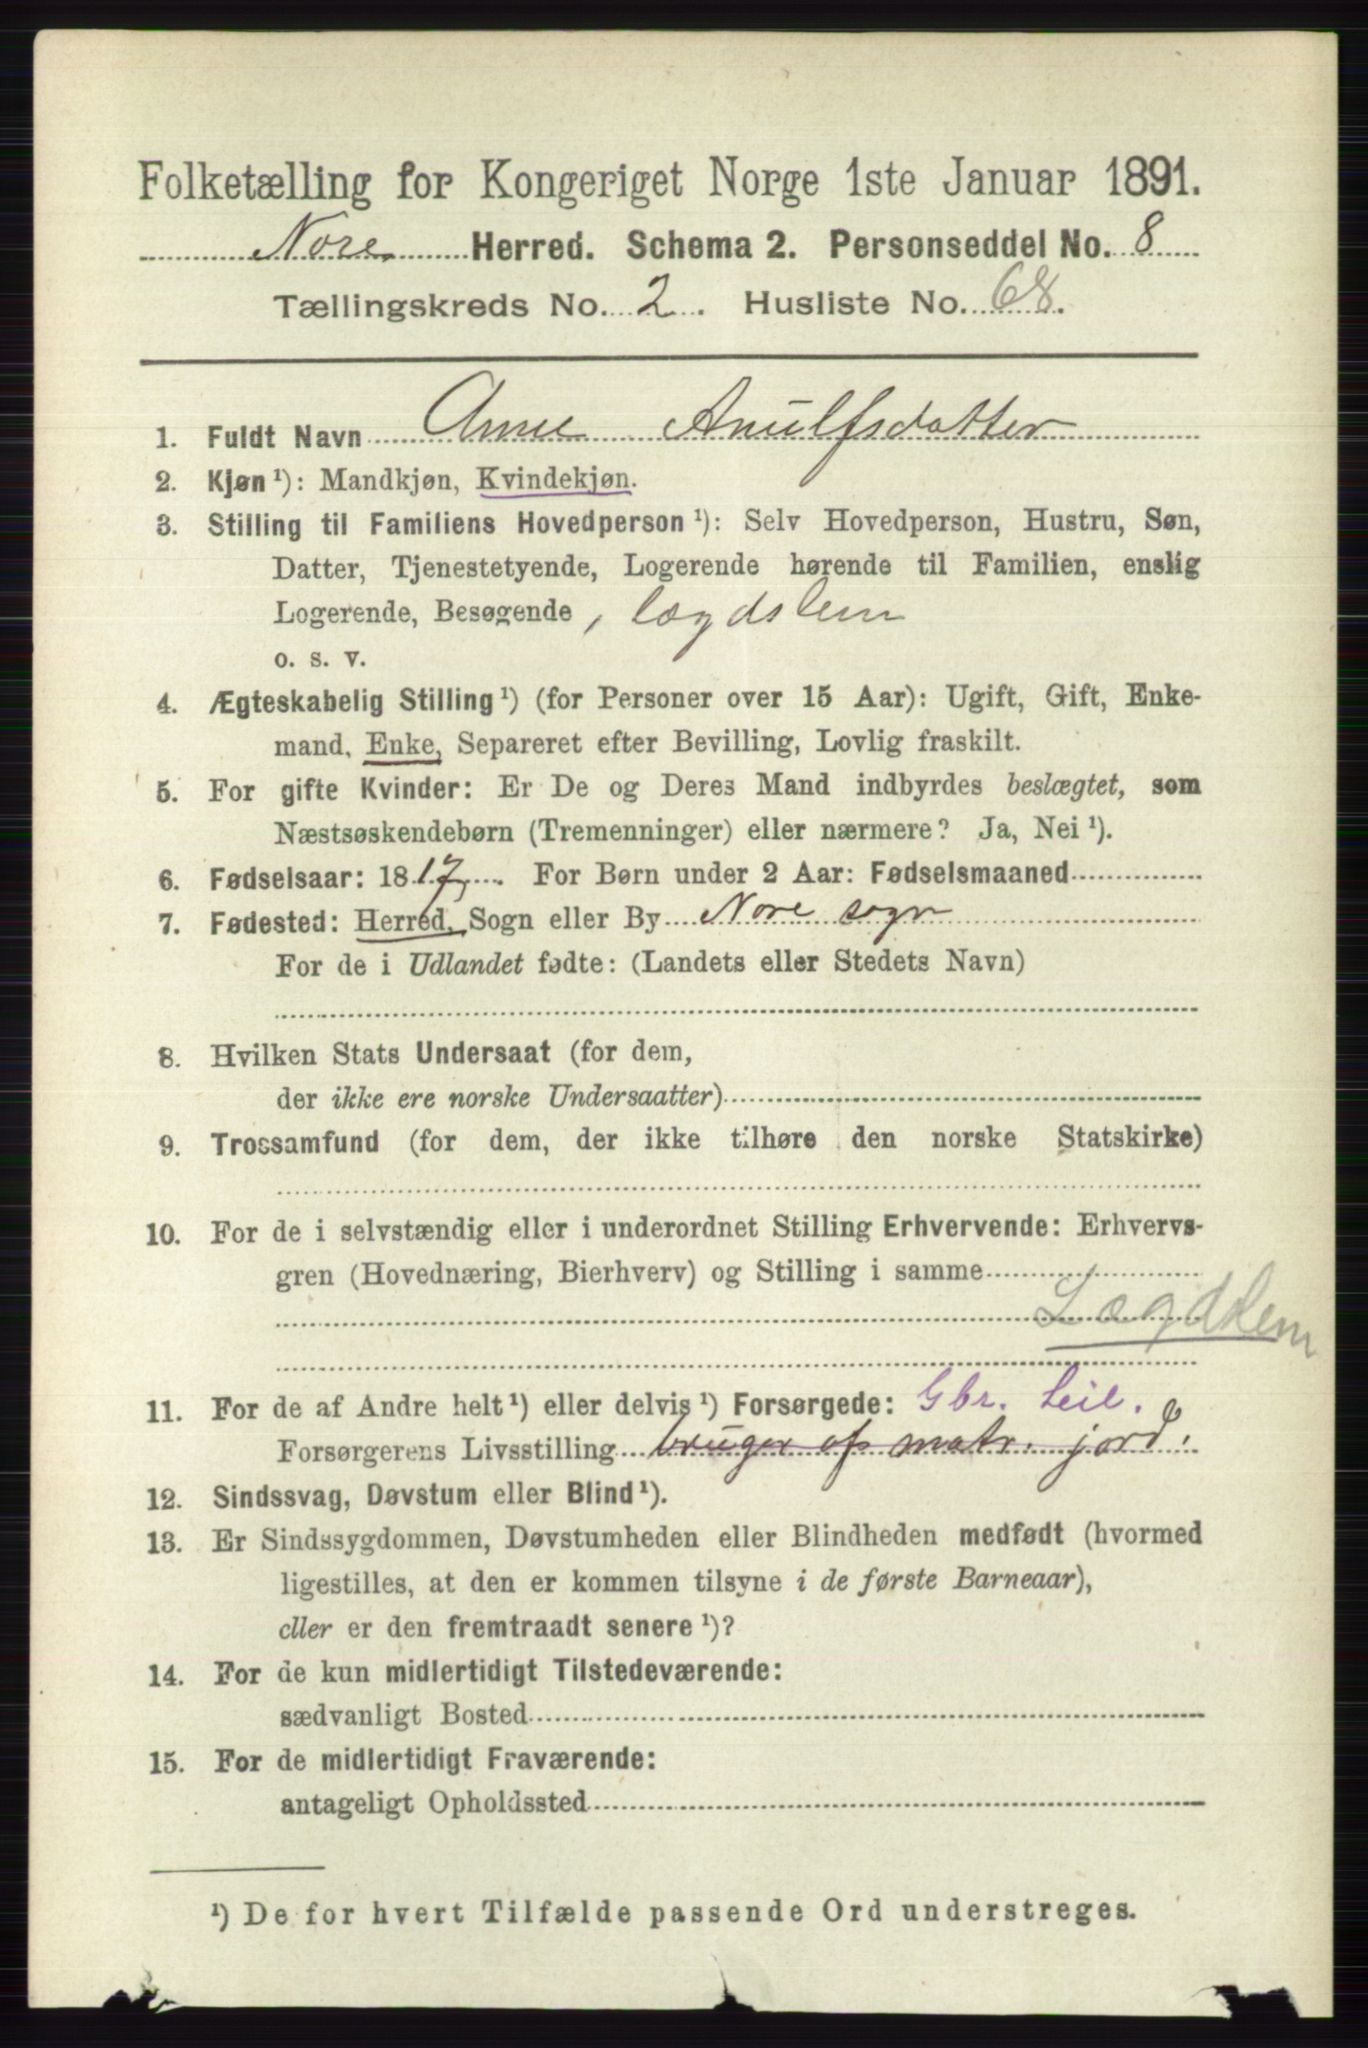 Folketælling for Kongeriget Norge 1ste Januar 1891.
Nore Herred. Schema 2. Personseddel No. 8
Tællingskreds No. 2. Husliste No. 68.
1. Fuldt Navn Anne Anulfsdatter
2. Kjøn ¹): Mandkjøn, Kvindekjøn.
3. Stilling til Familiens Hovedperson ¹): Selv Hovedperson, Hustru, Søn,
Datter, Tjenestetyende, Logerende hørende til Familien, enslig
Logerende, Besøgende, lægdslem
o. s. v.
4. Ægteskabelig Stilling ¹) (for Personer over 15 Aar): Ugift, Gift, Enke-
mand, Enke, Separeret efter Bevilling, Lovlig fraskilt.
5. For gifte Kvinder: Er De og Deres Mand indbyrdes beslægtet, som
Næstsøskendebørn (Tremenninger) eller nærmere? Ja, Nei ¹).
6. Fødselsaar: 1817. For Børn under 2 Aar: Fødselsmaaned
7. Fødested: Herred, Sogn eller By Nore sogn
For de i Udlandet fødte: (Landets eller Stedets Navn)
8. Hvilken Stats Undersaat (for dem,
der ikke ere norske Undersaatter)
9. Trossamfund (for dem, der ikke tilhøre den norske Statskirke)
10. For de i selvstændig eller i underordnet Stilling Erhvervende: Erhvervs-
gren (Hovednæring, Bierhverv) og Stilling i samme
Lægdslem
11. For de af Andre helt ¹) eller delvis ¹) Forsørgede: Gbr. Leil.
Forsørgerens Livsstilling bruger af matr. jord.
12. Sindssvag, Døvstum eller Blind ¹).
13. Er Sindssygdommen, Døvstumheden eller Blindheden medfødt (hvormed
ligestilles, at den er kommen tilsyne i de første Barneaar),
eller er den fremtraadt senere ¹)?
14. For de kun midlertidigt Tilstedeværende:
sædvanligt Bosted
15. For de midlertidigt Fraværende:
antageligt Opholdssted
¹) De for hvert Tilfælde passende Ord understreges.